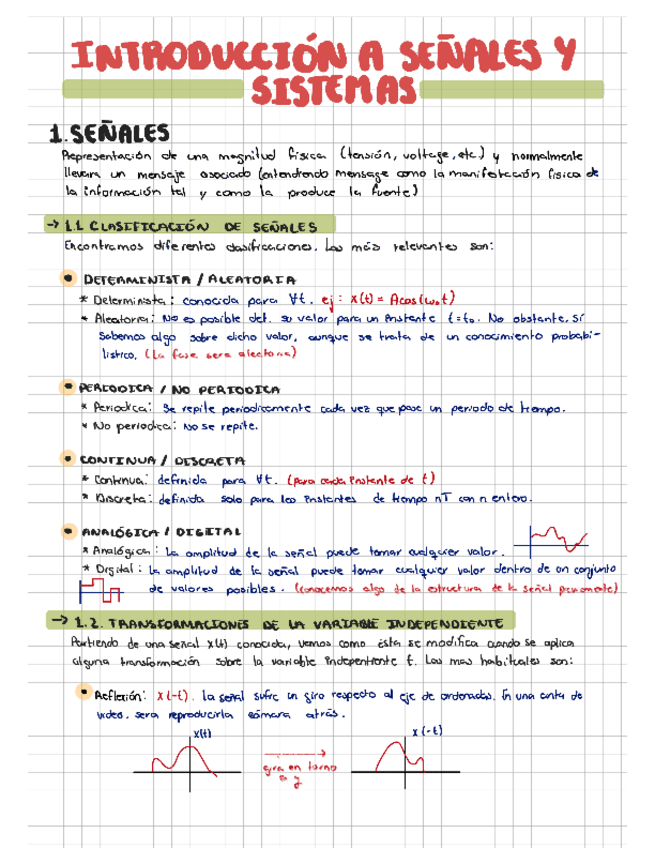 INTRODUCCIÓN A SEÑALES Y
SISTEMAS
1. SEÑALES
Representación de una magnitud física (tensión, voltage, etc.) y normalmente
llevan un mensaje asociado (entendiendo mensage como la manifestación física de
la información tal y como la produce la fuente)
→ 1.1 CLASIFICACIÓN DE SEÑALES
Encontramos diferentes clasificaciones. Las más relevantes son:
• DETERMINISTA / ALEATORIA
* Determinista: conocida para ∀t. ej: x(t) = Acos(ω₀t)
* Aleatoria: No es posible det. su valor para un instante t=t₀. No obstante, sí
sabemos algo sobre dicho valor, aunque se trata de un conocimiento probabi-
lístico. (La fase sera aleatoria)
• PERIODICA / NO PERIODICA
* Periodica: Se repite periodicamente cada vez que pase un periodo de tiempo.
* No periodica: No se repite.
• CONTINUA / DISCRETA
* Continua: definida para ∀t. (para cada instante de t)
* Discreta: definida solo para los instantes de tiempo nT con n entero.
• ANALÓGICA / DIGITAL
* Analógica: La amplitud de la señal puede tomar cualquier valor.
* Digital: La amplitud de la señal puede tomar cualquier valor dentro de un conjunto
de valores posibles. (conocemos algo de la estructura de la señal previamente)
→ 1.2. TRANSFORMACIONES DE LA VARIABLE INDEPENDIENTE
Partiendo de una señal x(t) conocida, vemos como ésta se modifica cuando se aplica
alguna transformación sobre la variable independiente t. Las mas habituales son:
• Reflexión: x(-t). La señal sufre un giro respecto al eje de ordenadas. En una cinta de
video, sera reproducirla cámara atrás.
x(t)
x(-t)
gira en torno
a y